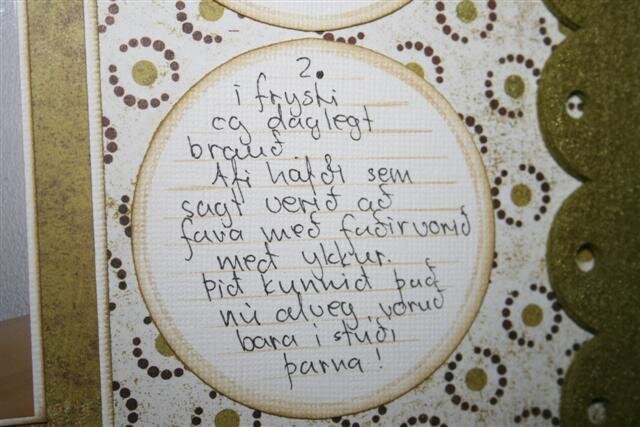 2.
í frysti
og daglegt
brauð
Afi hafði sem
sagt verið að
fara með faðirvorið
með ykkur.
þið kunnið það
nú alveg, voruð
bara í stuði
þarna!